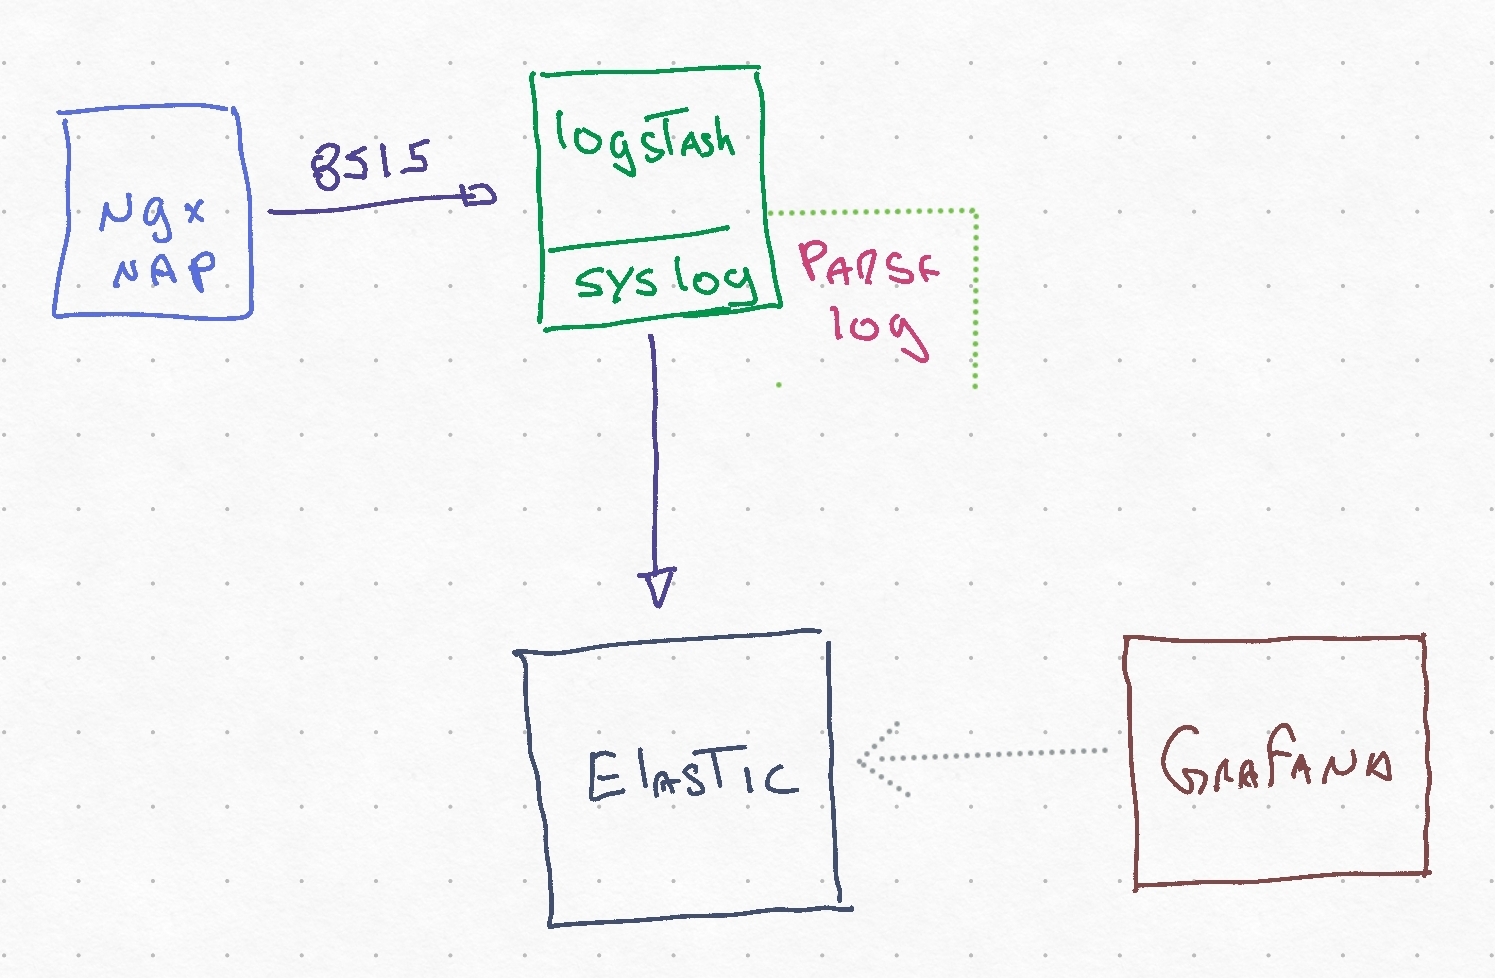 Ngx
NAP
8515
logstash
syslog
Parse
log
Elastic
Grafana